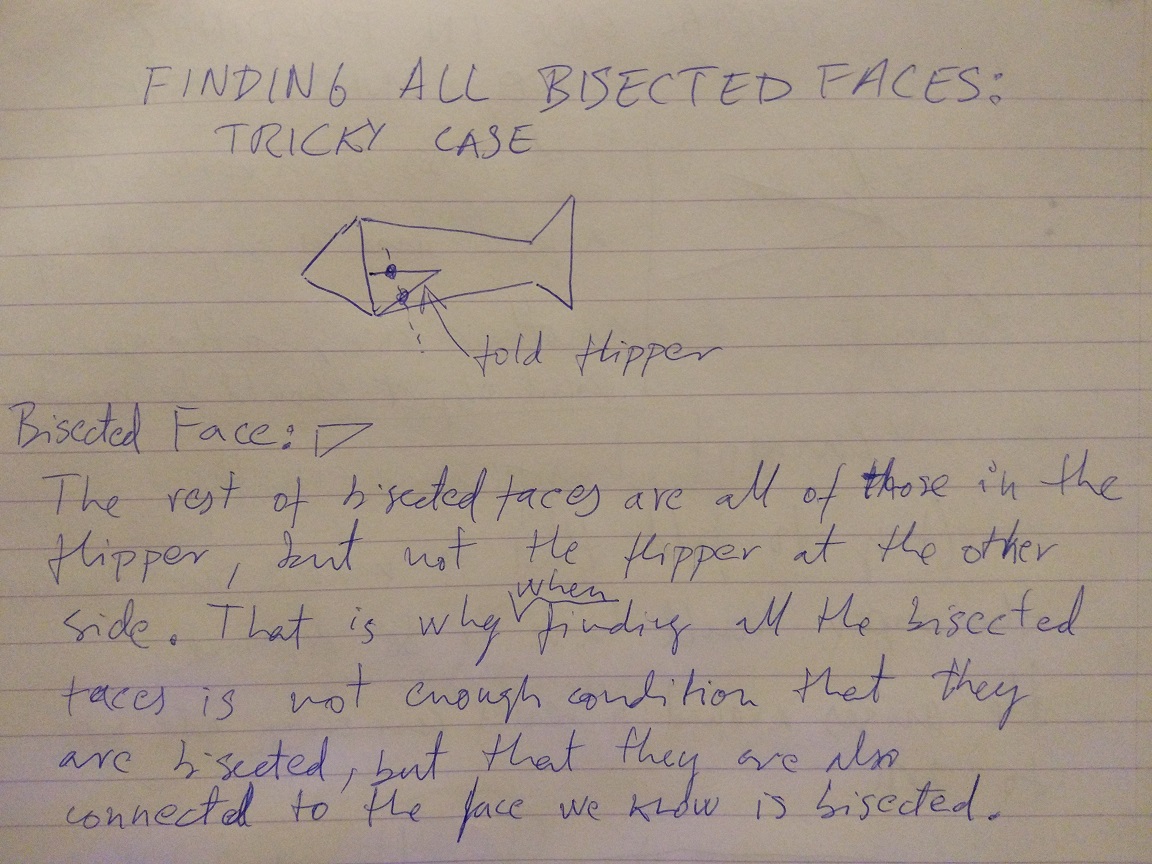 FINDING ALL BISECTED FACES:
TRICKY CASE
fold flipper
Bisected Face:
The rest of bisected faces are all of those in the
flipper, but not the flipper at the other
when
side. That is why finding all the bisected
faces is not enough condition that they
are bisected, but that they are also
connected to the face we know is bisected.